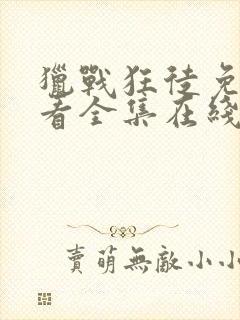 獵戰狂徒免
看全集在綫
賣萌無敵小小